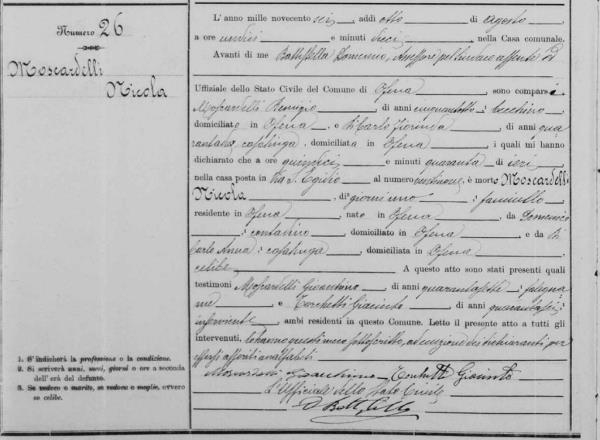 Numero 26
Moscardelli
Nicola
1. S'indicherà la professione o la condizione.
2. Si scriverà anni, mesi, giorni o ore a seconda
dell'età del defunto.
3. Se vedovo o marito, se vedova o moglie, ovvero
se celibe.
L'anno mille novecento sei, addì otto di agosto
a ore undici e minuti dieci, nella Casa comunale.
Avanti di me Battistella Domenico, Assessore pel Sindaco assente
Uffiziale dello Stato Civile del Comune di Ofena, sono comparsi
Moscardelli Remigio, di anni cinquantotto, becchino
domiciliato in Ofena, e Di Carlo Fiorinda, di anni qua
rantadue, casalinga, domiciliata in Ofena, i quali mi hanno
dichiarato che a ore quindici e minuti quaranta di ieri,
nella casa posta in Via S. Egidio al numero, è morto Moscardelli
Nicola, di giorni uno, fanciullo
residente in Ofena, nato in Ofena, da Domenico
, contadino, domiciliato in Ofena, e da Di
Carlo Anna, casalinga, domiciliata in Ofena,
celibe. A questo atto sono stati presenti quali
testimoni Moscardelli Gioacchino, di anni quarantasette, falegna
me, e Torchetti Giacinto, di anni quarantasei,
inserviente, ambi residenti in questo Comune. Letto il presente atto a tutti gli
intervenuti, lo hanno questi meco sottoscritto, ad eccezione dei dichiaranti per
essersi asseriti analfabeti
Moscardelli Gioacchino Torchetti Giacinto
L'Ufficiale dello Stato Civile